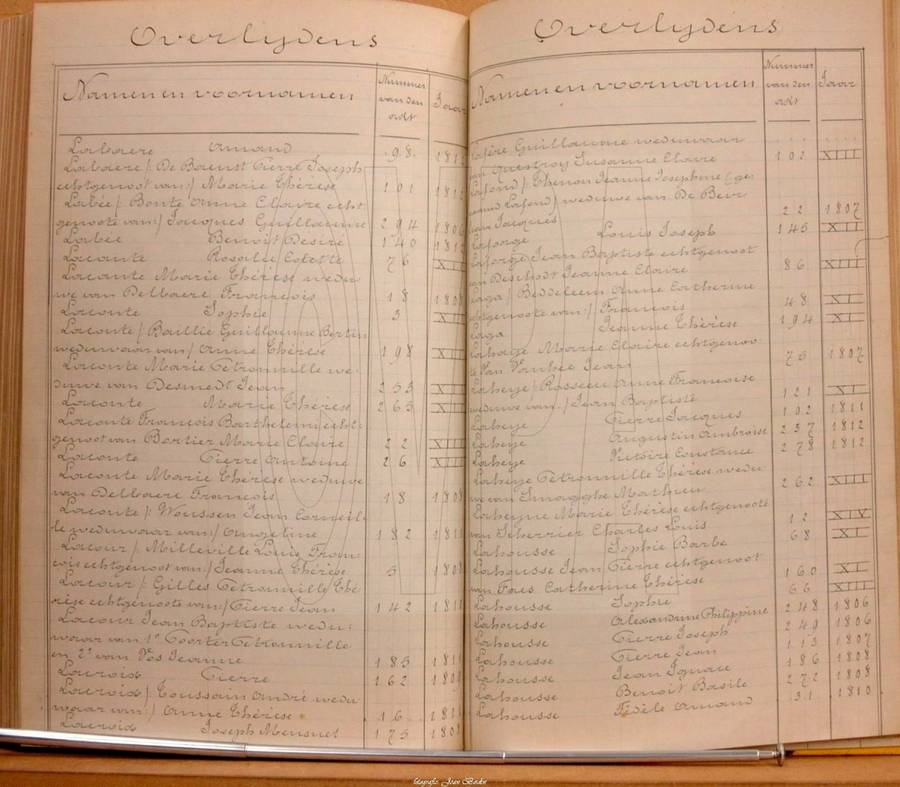 Overlydens
Namen en voornamen
Nummer
van den
acte
Jaar
Labaere Amand 98
Labaere / De Baenst Pierre Joseph
echtgenoot van / Marie Thérèse 101
Labée / Bonte Anne Claire echt
genoote van / Jacques Guillaume 294
Labée Benoit Desiré 140
Laconte Rosalie Colette 76
Laconte Marie Thérèse wedu
we van Delbaere François 18
Laconte Sophie 3
Laconte / Baillie Guillaume Bertin
weduwaar van / Anne Thérèse 198
Laconte Marie Petronille we
duwe van Desmedt Jean 255
Laconte Marie Thérèse 265
Laconte François Barthelemi echt
genoot van Bertier Marie Claire 22
Laconte Pierre Antoine 26
Laconte Marie Thérèse weduwe
van Delbaere François 18
Laconte / Woussen Jean Corneil
le weduwaar van / Angeline 182
Lacour / Milleville Louis Fran
cois echtgenoot van / Jeanne Thérèse 5
Lacour / Gilles Petronille Thé
rèse echtgenoote van / Pierre Jean 142
Lacour Jean Baptiste wedu
waar van 1° Coorter Petronille
en 2° van Vos Jeanne 185
Lacroix Pierre 162
Lacroix / Toussain André wedu
waar van / Anne Thérèse 16
Lacroix Joseph Mensuet 175
Overlydens
Namen en voornamen
Nummer
van den
acte
Jaar
Guillaume weduwaar
Susanne Claire 102 XIII
Lafond / Thenon Jeanne Josephine (ge
naamd Lafond) weduwe van De Bevr
van Jacques 22 1807
Laforge Louis Joseph 145 XII
Laforge Jean Baptiste echtgenoot
van Deschodt Jeanne Claire 86 XIII
Laga / Beddeleem Anne Catherine
echtgenoote van / François 48 XI
Laga Jeanne Thérèse 194 XI
Lahage Marie Claire echtgenoo
te Van Jean 75 1807
Laheye / Rosseeu Anne Françoise
weduwe van / Jean Baptiste 121 XI
Laheye Pierre Jacques 102 1811
Laheye Augustin Ambroise 257 1812
Laheye Victoire Constance 278 1812
Laheye Petronille Thérèse wedu
we van Smagghe Mathieu 262 XIII
Laheyne Marie Thérèse echtgenoote
van Scherrier Charles Louis 12 XIV
Lahousse Sophie Barbe 68 XI
Lahousse Jean Pierre echtgenoot
van Catherine Thérèse 160 XI
Lahousse Sophie 66 XIII
Lahousse Alexandrine Philippine 248 1806
Lahousse Pierre Joseph 249 1806
Lahousse Pierre Jean 113 1807
Lahousse Jean Ignace 186 1808
Lahousse Benoit Basile 272 1808
Lahousse Fidèle Amand 31 1810